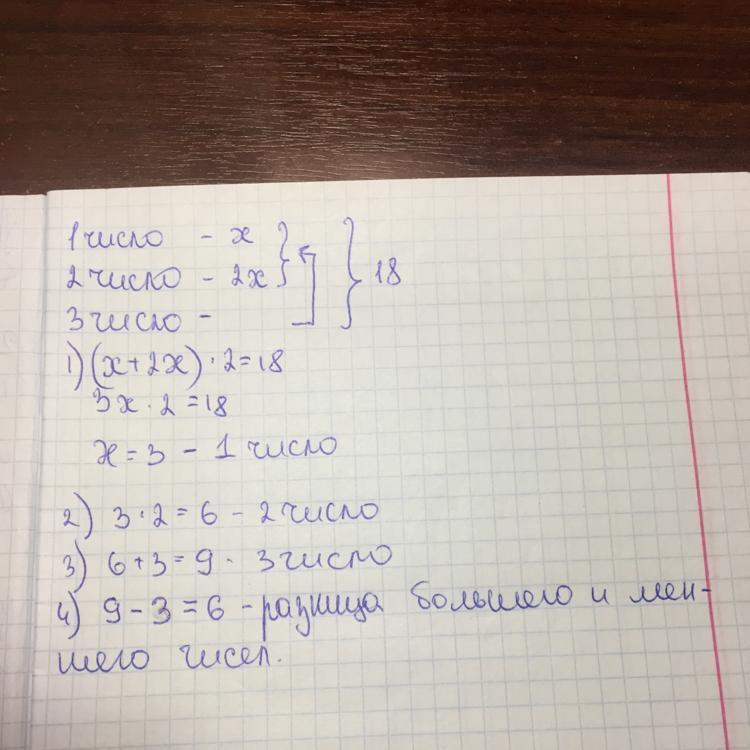 1 число - x
2 число - 2x
3 число -
18
1) (x+2x)·2=18
3x·2=18
x=3 - 1 число
2) 3·2=6 - 2 число
3) 6+3=9 - 3 число
4) 9-3=6 - разница большего и мен-
шего чисел.